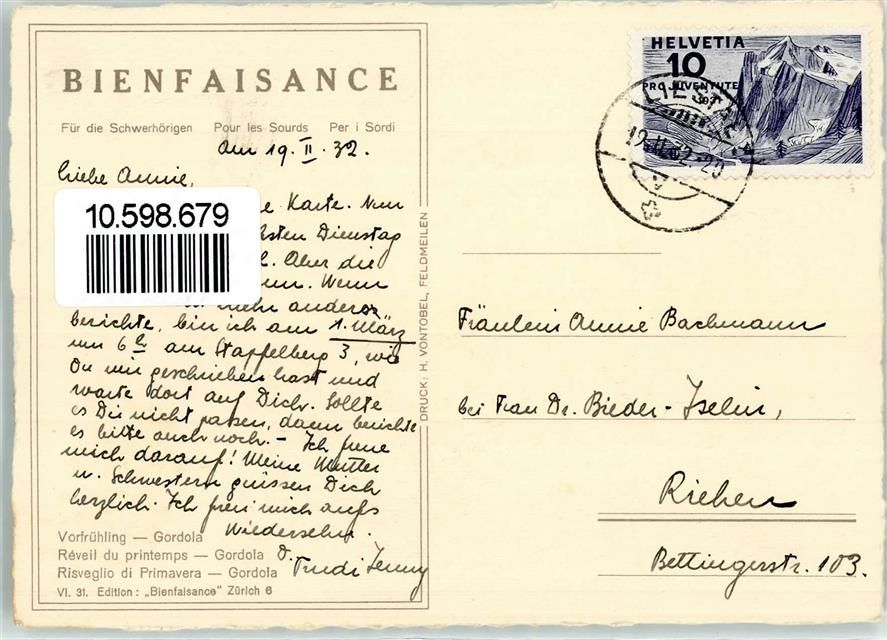 BIENFAISANCE
Für die Schwerhörigen Pour les Sourds Per i Sordi
am 19. II. 32.
Liebe Annie,
10.598.679
Karte. Nun
Dienstag
Aber die
Wenn
mehr anders
berichte, bin ich am 1. März
um 6 h am Stapfelberg 3, wie
Du mir geschrieben hast und
warte dort auf Dich. Sollte
es Dir nicht passen, dann berichte
es bitte auch noch. – Ich freue
mich darauf! Meine Mutter
u. Schwestern grüssen Dich
herzlich. Ich freu mich aufs
Wiedersehn.
d. Trudi Jenny
Vorfrühling — Gordola
Réveil du printemps — Gordola
Risveglio di Primavera — Gordola
VI. 31. Edition: „Bienfaisance" Zürich 6
DRUCK: H. VONTOBEL, FELDMEILEN
HELVETIA
10
PRO JUVENTUTE
LIESTAL
19.II.32.-20
Fräulein Annie Bachmann
bei Frau Dr. Bieder-Iselin,
Riehen
Bettingerstr. 103.